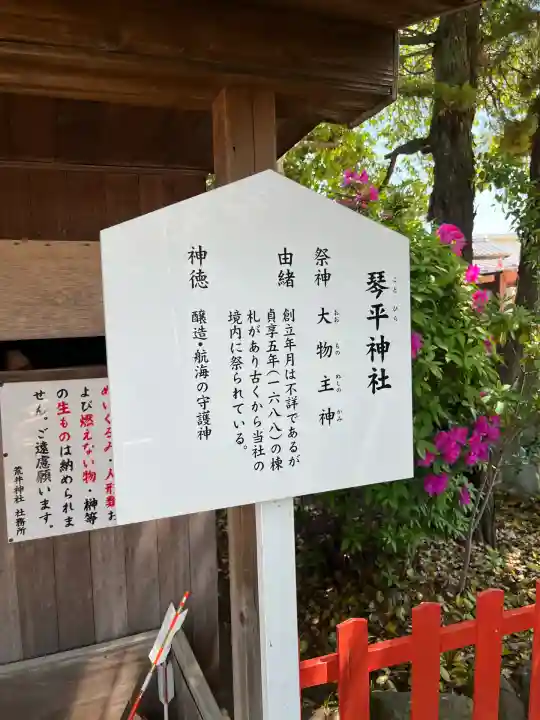 琴平神社
こと ひら
祭神 大物主神
おお もの ぬしの かみ
由緒 創立年月は不詳であるが
貞享五年(一六八八)の棟
札があり古くから当社の
境内に祭られている。
神徳 醸造・航海の守護神
ぬいぐるみ・人形類お
よび燃えない物・榊等
の生ものは納められま
せん。ご遠慮願います。
荒井神社 社務所